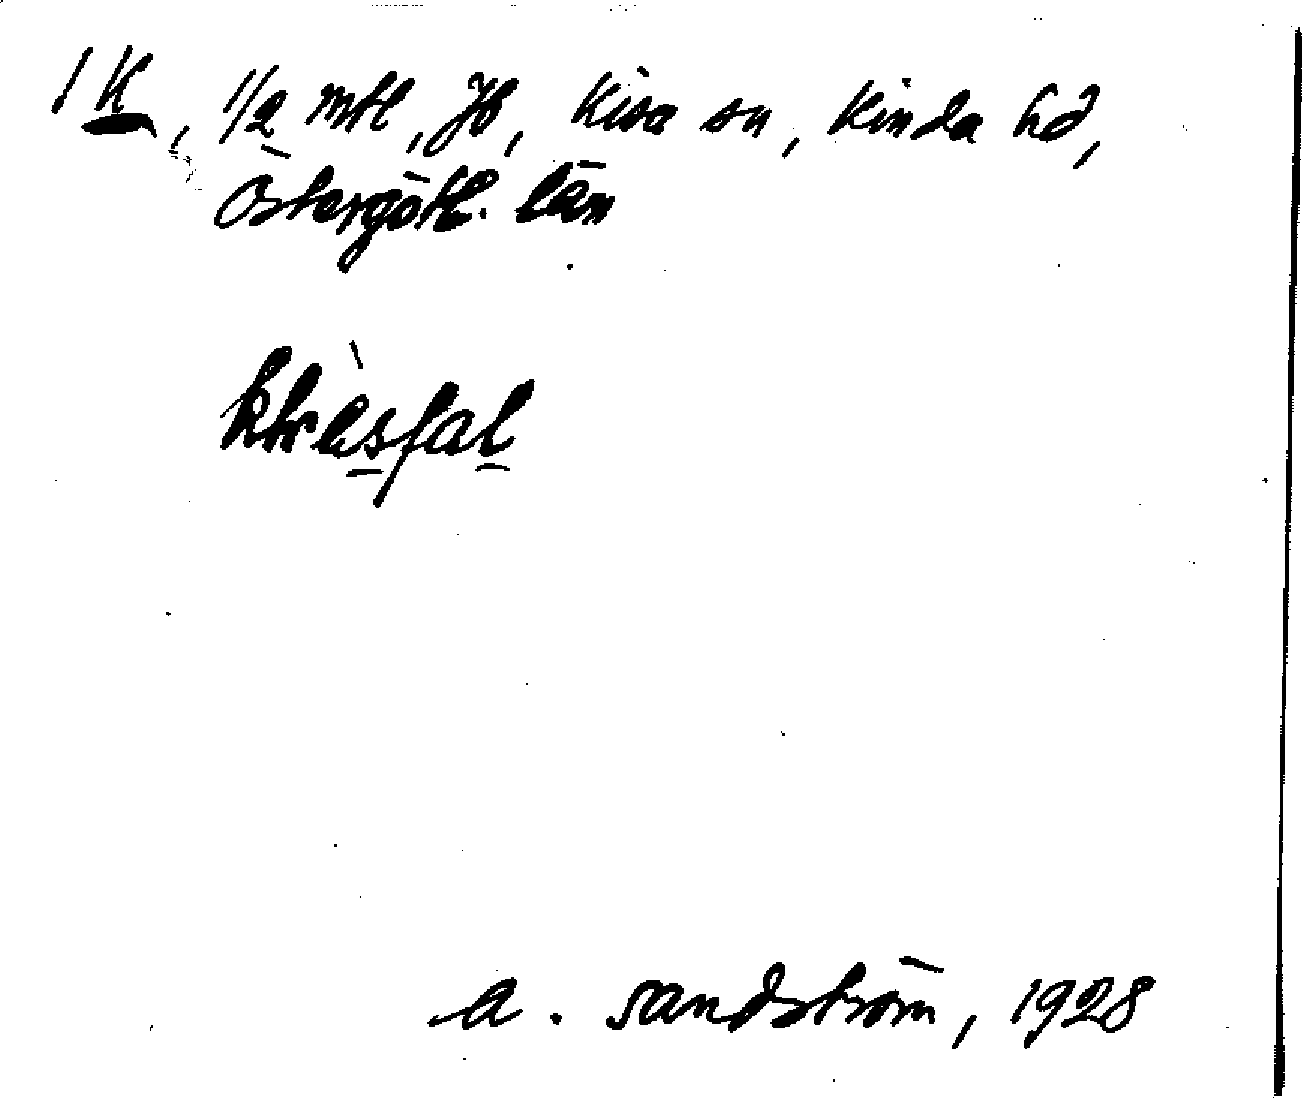 1 K, 1/2 mtl, Jb, Kisa sn, Kinda hd,
Östergötl. län
A. Sandström, 1928